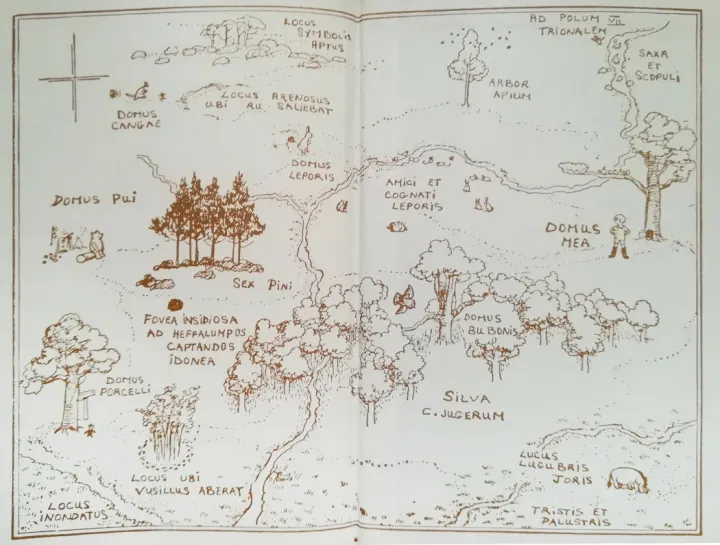 LOCUS
SYMBOLIS
APTUS
AD POLUM VII
TRIONALEM
SAXA
ET
SCOPULI
ARBOR
APIUM
DOMUS
CANGAE
LOCUS ARENOSUS
UBI RU SALIEBAT
DOMUS
LEPORIS
AMICI ET
COGNATI
LEPORIS
DOMUS PUI
DOMUS
MEA
SEX PINI
FOVEA INSIDIOSA
AD HEFFALUMPOS
CAPTANDOS
IDONEA
DOMUS
BUBONIS
DOMUS
PORCELLI
SILVA
C. JUGERUM
LOCUS UBI
VUSILLUS ABERAT
LUCUS
LUCUBRIS
JORIS
LOCUS
INONDATUS
TRISTIS ET
PALUSTRIS